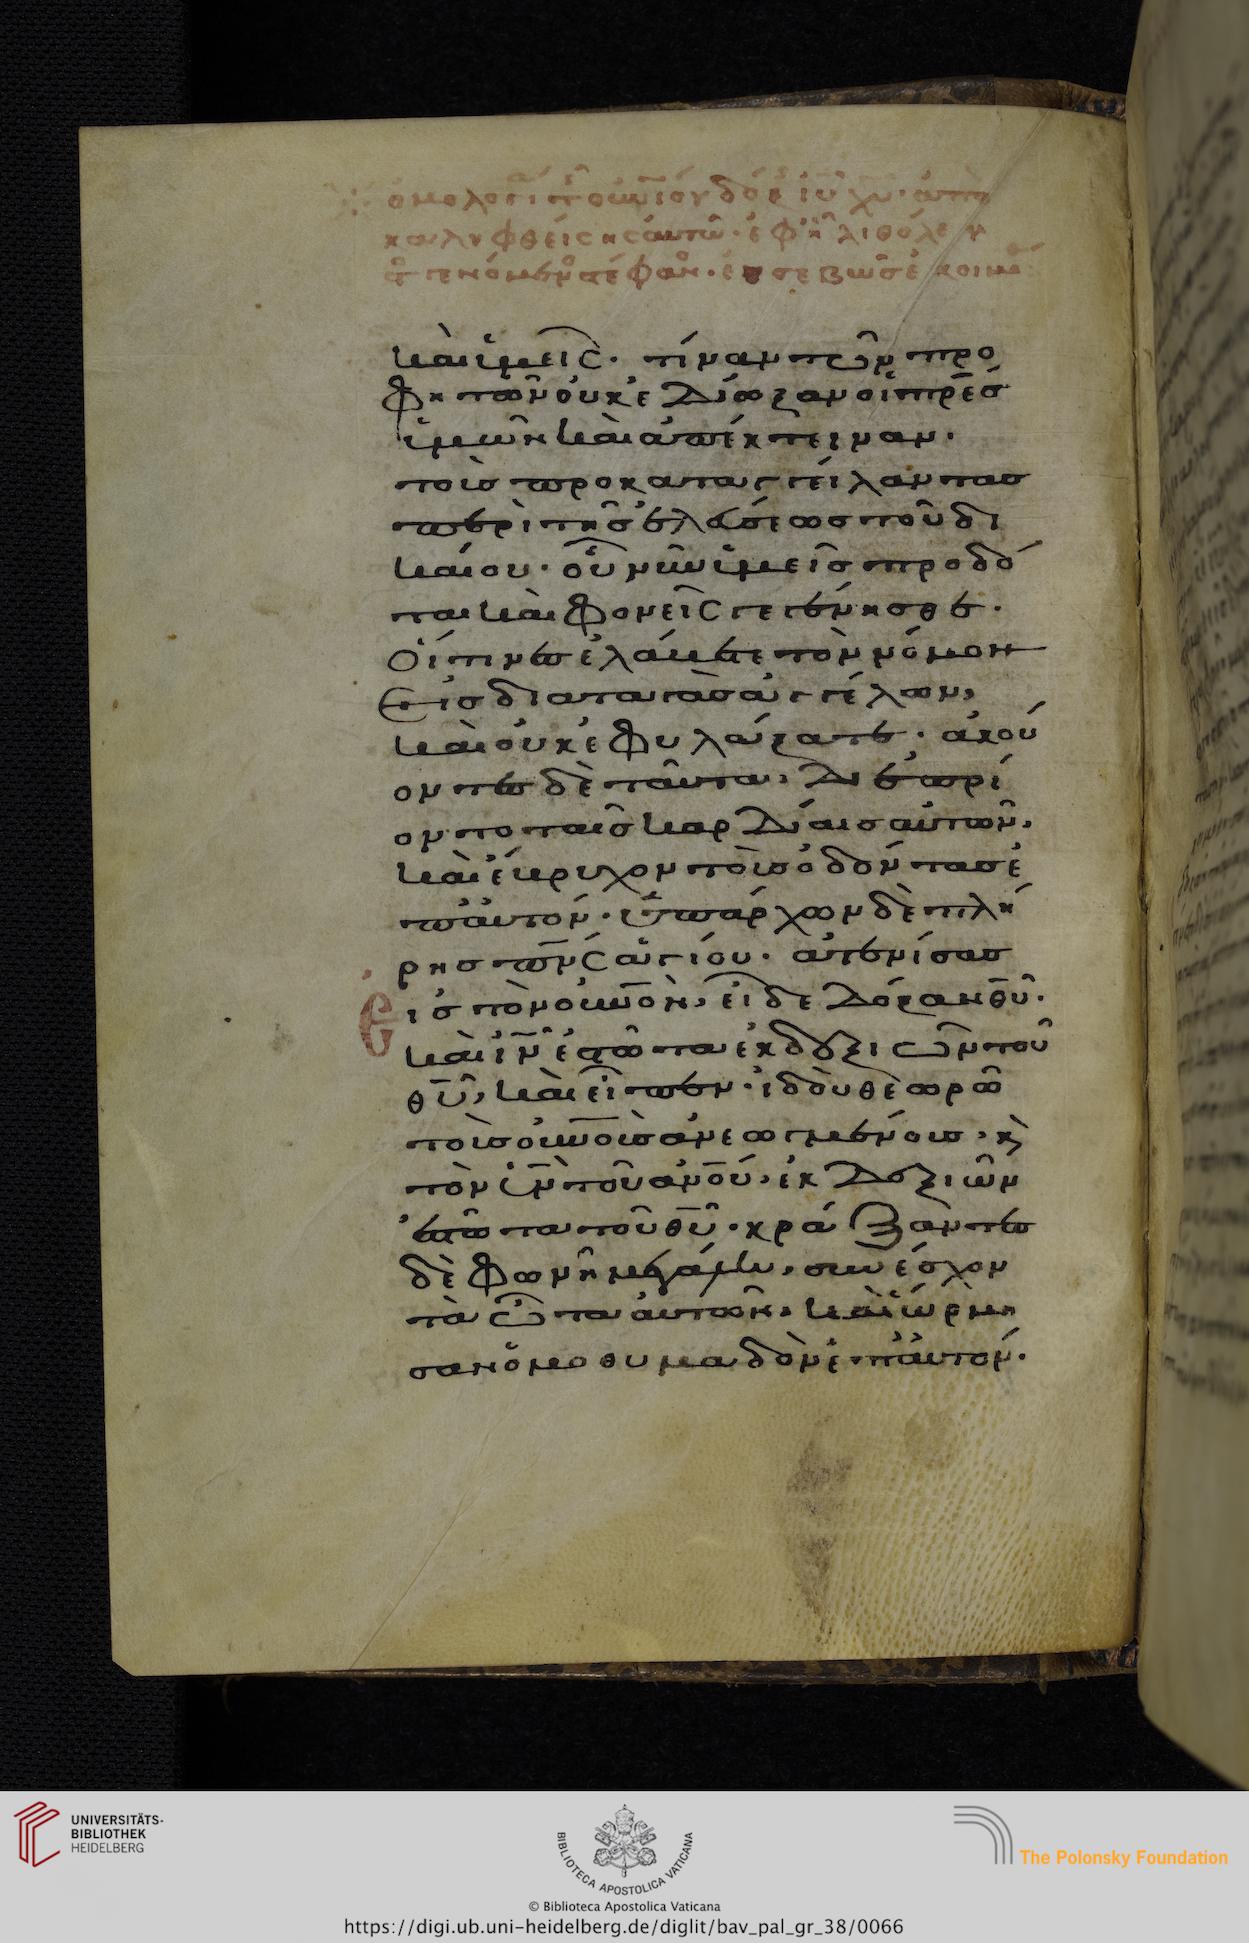 καὶ ὑμεῖς· τίνα τῶν προ
φητῶν οὐκ ἐδίωξαν οἱ πρ̅ε̅ς
ὑμῶν καὶ ἀπέκτειναν·
τοὺς προκαταγγείλαντας
περὶ τῆς ἐλεύσεως τοῦ δι
καίου· οὗ νῦν ὑμεῖς προδό
ται καὶ φονεῖς γεγένησθε·
Οἵτινες ἐλάβετε τὸν νόμον
εἰς διαταγὰς ἀγγέλων,
καὶ οὐκ ἐφυλάξατε· ἀκού
οντες δὲ ταῦτα, διεπρί
οντο ταῖς καρδίαις αὐτῶν,
καὶ ἔβρυχον τοὺς ὀδόντας ἐ
π' αὐτόν· ὑπάρχων δὲ πλή
ρης π̅ν̅ς ἁγίου· ἀτενίσας
εἰς τὸν οὐ̅νὸν, εἶδε δόξαν θ̅υ̅·
καὶ ι̅ν̅ ἑστῶτα ἐκ δεξιῶν τοῦ
θ̅υ̅, καὶ εἶπεν· ἰδοὺ θεωρῶ
τοὺς οὐ̅νοὺς ἀνεωγμένους, κὶ
τὸν υ̅ν̅ τοῦ ἀ̅ν̅ο̅υ̅, ἐκ δεξιῶν
ἑστῶτα τοῦ θ̅υ̅· κράξαντες
δὲ φωνῇ μεγάλῃ, συνέσχον
τὰ ὦτα αὐτῶν, καὶ ὥρμη
σαν ὁμοθυμαδὸν ἐπ' αὐτόν·
UNIVERSITÄTS-
BIBLIOTHEK
HEIDELBERG
BIBLIOTECA APOSTOLICA VATICANA
The Polonsky Foundation
© Biblioteca Apostolica Vaticana
https://digi.ub.uni-heidelberg.de/diglit/bav_pal_gr_38/0066